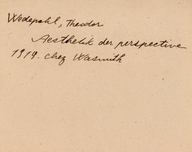 Wedepohl, Theodor
Aesthetik der perspective
1919. chez Wasmuth